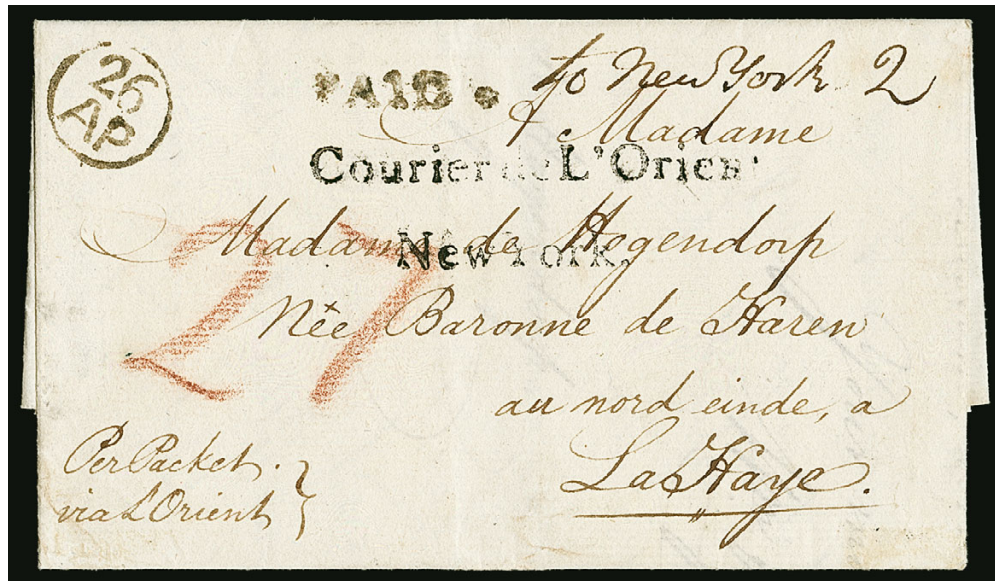 26
AP
PAID. to New York 2
Madame
Courier de L'Orient
Madame de Hogendorp
New York.
Née Baronne de Haren
27
au nord einde, a
La Haye.
Per Packet.
via L'Orient